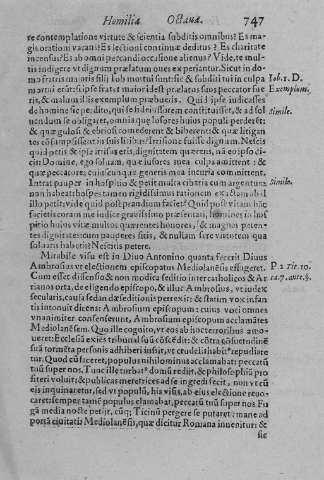 Homilia Octaua. 747
re contemplationis virtute & scientia subditis omnibus? Es ma-
gis orationi vacans? Es lectioni continuæ deditus? Es charitate
incensus? Es ab omni peccandi occasione alienus? Vide, te mul-
tis indigere vt dignum prælatum ones experiantur. Sicut in do-
mo fratris maioris filij Iob mortui sunt: sic & subditi tui in culpa
morituri sunt: si ipse frater maior id est prælatus suus peccator fue
ris, & malum illis exemplum præbueris. Quid ipse iudicasses
de homine sic perdito, qui se fideiussorem constituisset, & ad sol
uendum se obligaret, omnia quę lusores huius populi perderēt:
& quæ gulosi & ebriosi comederent & biberent: & quæ litigan
tes cōsumpsissent in suis litibus? Irrisione fuisse dignum. Nescis
quid petis & ipse irrisus eris, dignitatem quærens, nā eo ipso di-
cis: Domine, ego soluam, quæ lusores mea culpa amittent: &
quæ peccatores; cuiuscunque generis mea incuria committent.
Intrat pauper in hospitio & petit multa cibaria cum argentum
non habeat: hospes tamen rigidissimus rationem exactam ab il
illo petit: vide quid post prandium faciet? Quid post vitam hāc
societis coram me iudice grauissimo præsentari, homines in hos
pitio huius vitæ multos quærentes honores, & magnas peten-
tes dignitates cum pauperes sitis, & nullam fere virtutem qua
soluatis habetis? Nescitis petere.
Mirabile visu est in Diuo Antonino quanta fecerit Diuus
Ambrosius vt electionem episcopatus Mediolanēsis effugeret.
Cum esset dissensio & non modica seditio inter catholicos & Ar
rianos orta, de eligendo episcopo, & illuc Ambrosius, vt iudex
secularis, causa sedandæ seditionis perrexit: & statim vox infan
tis intonuit dicens: Ambrosium episcopum: cuius voci omnes
vnanimiter consenserunt, Ambrosium episcopum acclamātes
Mediolanēsem. Quo ille cognito, vt eos ab hoc terroribus amo-
ueret: Ecclesia exiēs tribunal suū cōscēdit: & cōtra cōsuetudinē
suā tormēta personis adhiberi iussit, vt crudelis habit° repudiare
tur. Quod cū faceret, populus nihilominus acclamabat: peccatū
tuū super nos. Tunc ille turbat° domū redijt, & philosophiā pro
fiteri voluit: & publicas meretrices ad se ingredi fecit, non vt cū
eis inquinaretur, sed vt populus, his visis, ab eius electione reuo-
caret: semper tamē populus clamabat, peccatū tuū super nos. Fu
gā media nocte petijt, cūq; Ticinū pergere se putaret: mane ad
portā ciuitatis Mediolanēsis, quæ dicitur Romana inuenitur: &
sic
Iob. 1. D.
Exemplum.
Simile.
Simile.
P 2 Tit. 10.
ca. 7. ante. §.